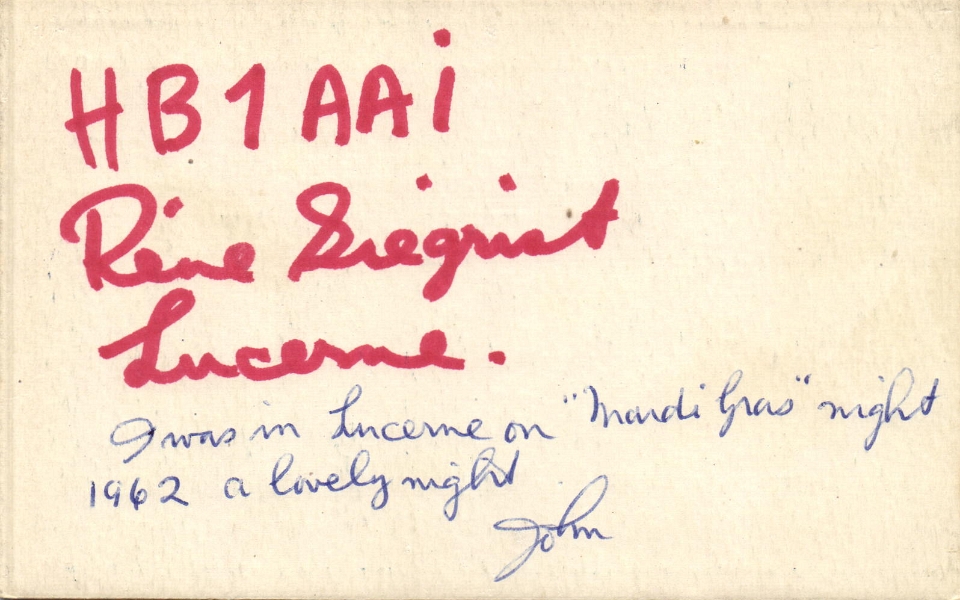 HB1AAi
Réne Siegrist
Lucerne.
I was in Lucerne on "Mardi Gras" night
1962 a lovely night
John